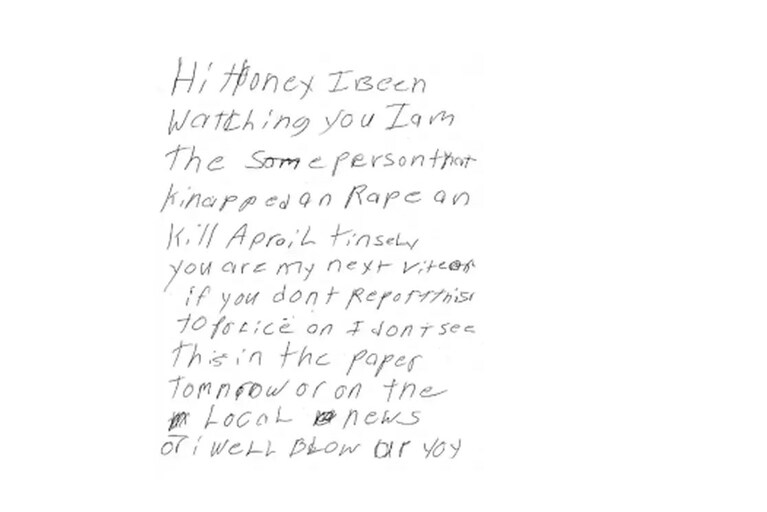 Hi Honey I Been
Watching you I am
the Same person that
kinapped an Rape an
kill Aproil tinsely
you are my next vitem
if you dont Report this
to police an I dont see
this in the paper
tomorrow or on the
Local news
or i well BLow ur